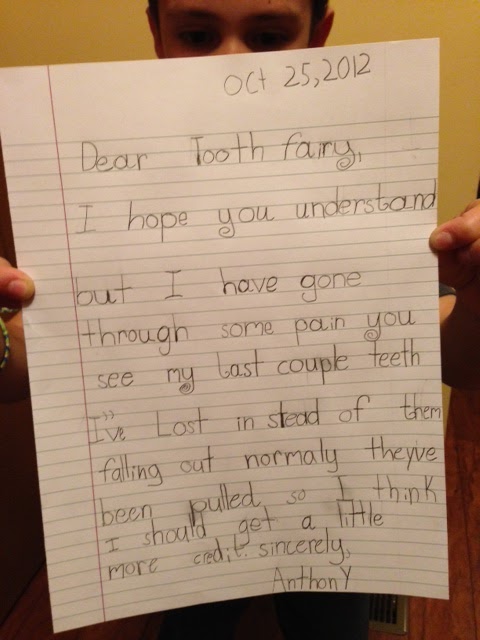 Oct 25,2012
Dear Tooth fairy,
I hope you understand
but I have gone
through some pain you
see my last couple teeth
I've Lost in stead of them
falling out normaly they've
been pulled, so I think
I should get a little
more credit. sincerely,
Anthony